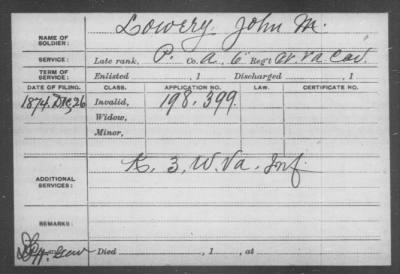 NAME OF SOLDIER: Lowery John M.
SERVICE: Late rank, P. Co. A, 6 Reg't W. Va Cav.
TERM OF SERVICE: Enlisted , 1 Discharged , 1
DATE OF FILING. CLASS. APPLICATION NO. LAW. CERTIFICATE NO.
1874. Dec, 26 Invalid, 198.399.
Widow,
Minor,
ADDITIONAL SERVICES: K. 3, W. Va. Inf
REMARKS:
Died , 1 , at